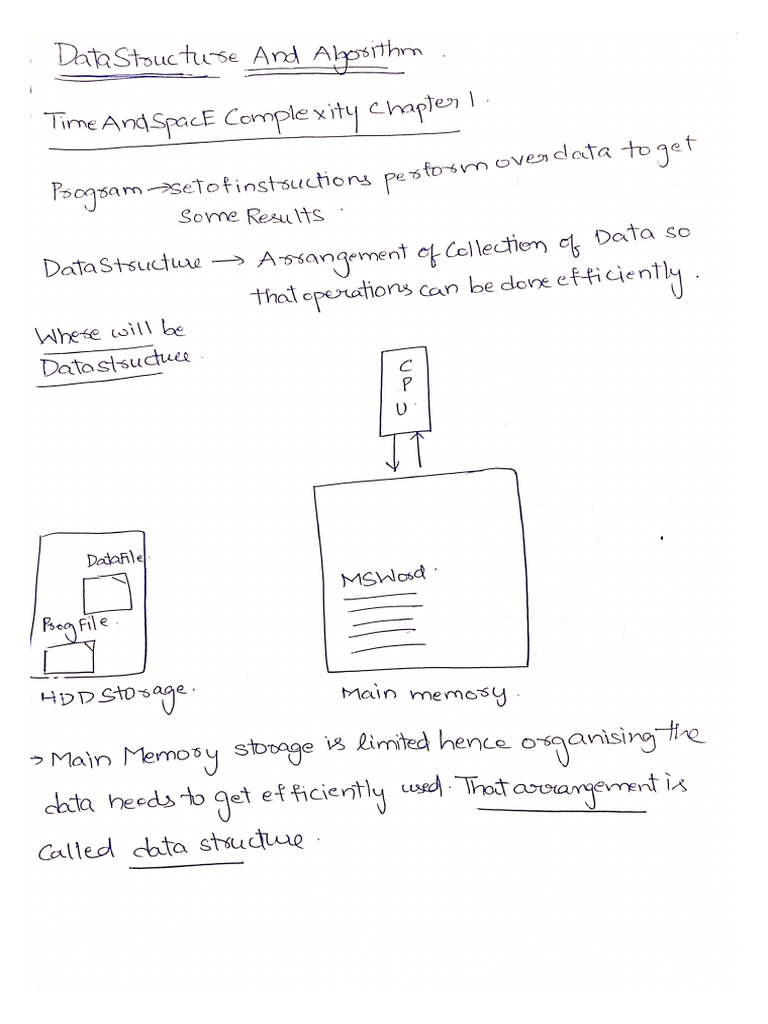 DataStructure And Algorithm.
TimeAndSpacE Complexity Chapter 1.
Program → setofinstructions perform over data to get
some Results.
DataStructure → Arrangement of Collection of Data so
that operations can be done efficiently.
Where will be
Datastructure.
C
P
U.
DataFile.
ProgFile.
MSWord.
HDD Storage.
Main memory.
→ Main Memory storage is limited hence organising the
data needs to get efficiently used. That arrangement is
called data structure.